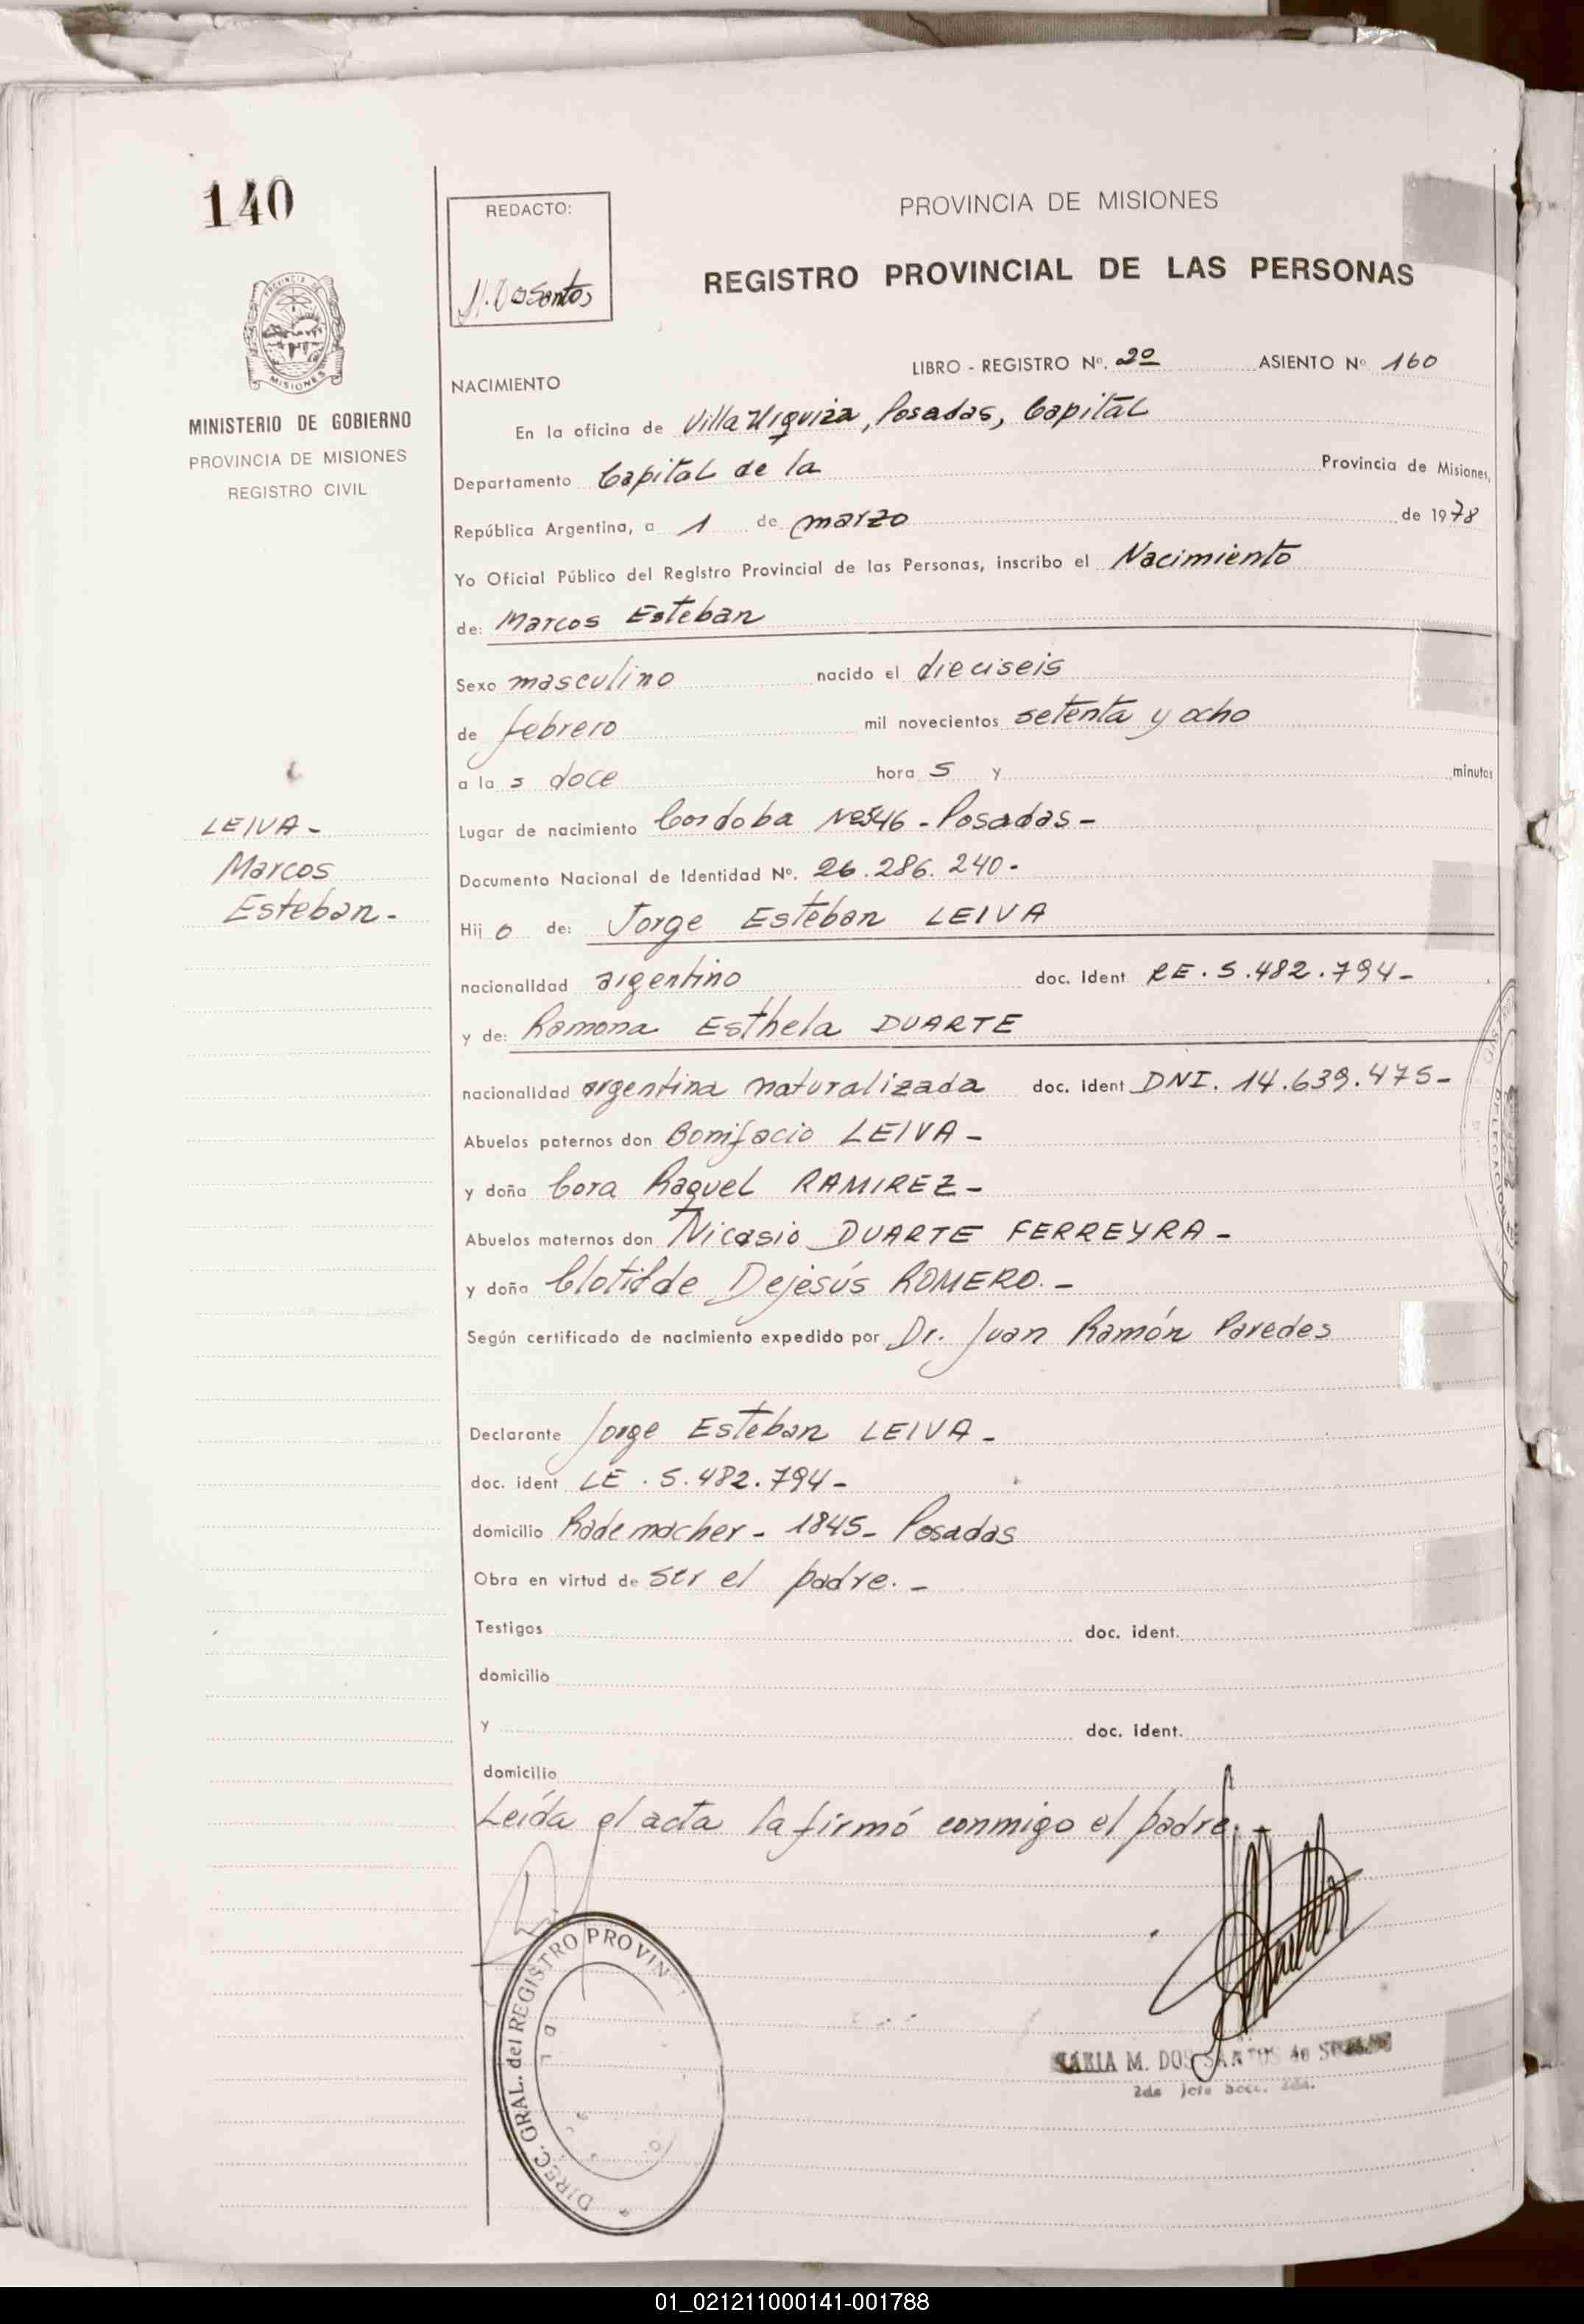 140
REDACTO:
M. Dos Santos
PROVINCIA DE MISIONES
REGISTRO PROVINCIAL DE LAS PERSONAS
MINISTERIO DE GOBIERNO
PROVINCIA DE MISIONES
REGISTRO CIVIL
LIBRO - REGISTRO Nº. 2º ASIENTO Nº 160
NACIMIENTO
En la oficina de Villa Urquiza, Posadas, Capital
Departamento Capital de la Provincia de Misiones,
República Argentina, a 1 de marzo de 1978
Yo Oficial Público del Registro Provincial de las Personas, inscribo el Nacimiento
de: Marcos Esteban
Sexo masculino nacido el dieciseis
de febrero mil novecientos setenta y ocho
a la s doce hora s y minutos
LEIVA -
Marcos
Esteban -
Lugar de nacimiento Cordoba Nº 546 - Posadas -
Documento Nacional de Identidad Nº. 26.286.240-
Hij o de: Jorge Esteban LEIVA
nacionalidad argentino doc. ident RE. 5.482.794-
y de: Ramona Esthela DUARTE
nacionalidad argentina naturalizada doc. ident DNI. 14.639.475-
Abuelos paternos don Bonifacio LEIVA -
y doña Cora Raquel RAMIREZ -
Abuelos maternos don Nicasio DUARTE FERREYRA -
y doña Clotilde Dejesús ROMERO. -
Según certificado de nacimiento expedido por Dr. Juan Ramón Paredes
Declarante Jorge Esteban LEIVA -
doc. ident LE. 5.482.794-
domicilio Rademacher - 1845 - Posadas
Obra en virtud de ser el padre. -
Testigos doc. ident.
domicilio
y doc. ident.
domicilio
Leída el acta la firmó conmigo el padre. -
DIREC. GRAL. del REGISTRO PROVIN
MARIA M. DOS SANTOS de
2da Jefe Secc. 2da.
01_021211000141-001788